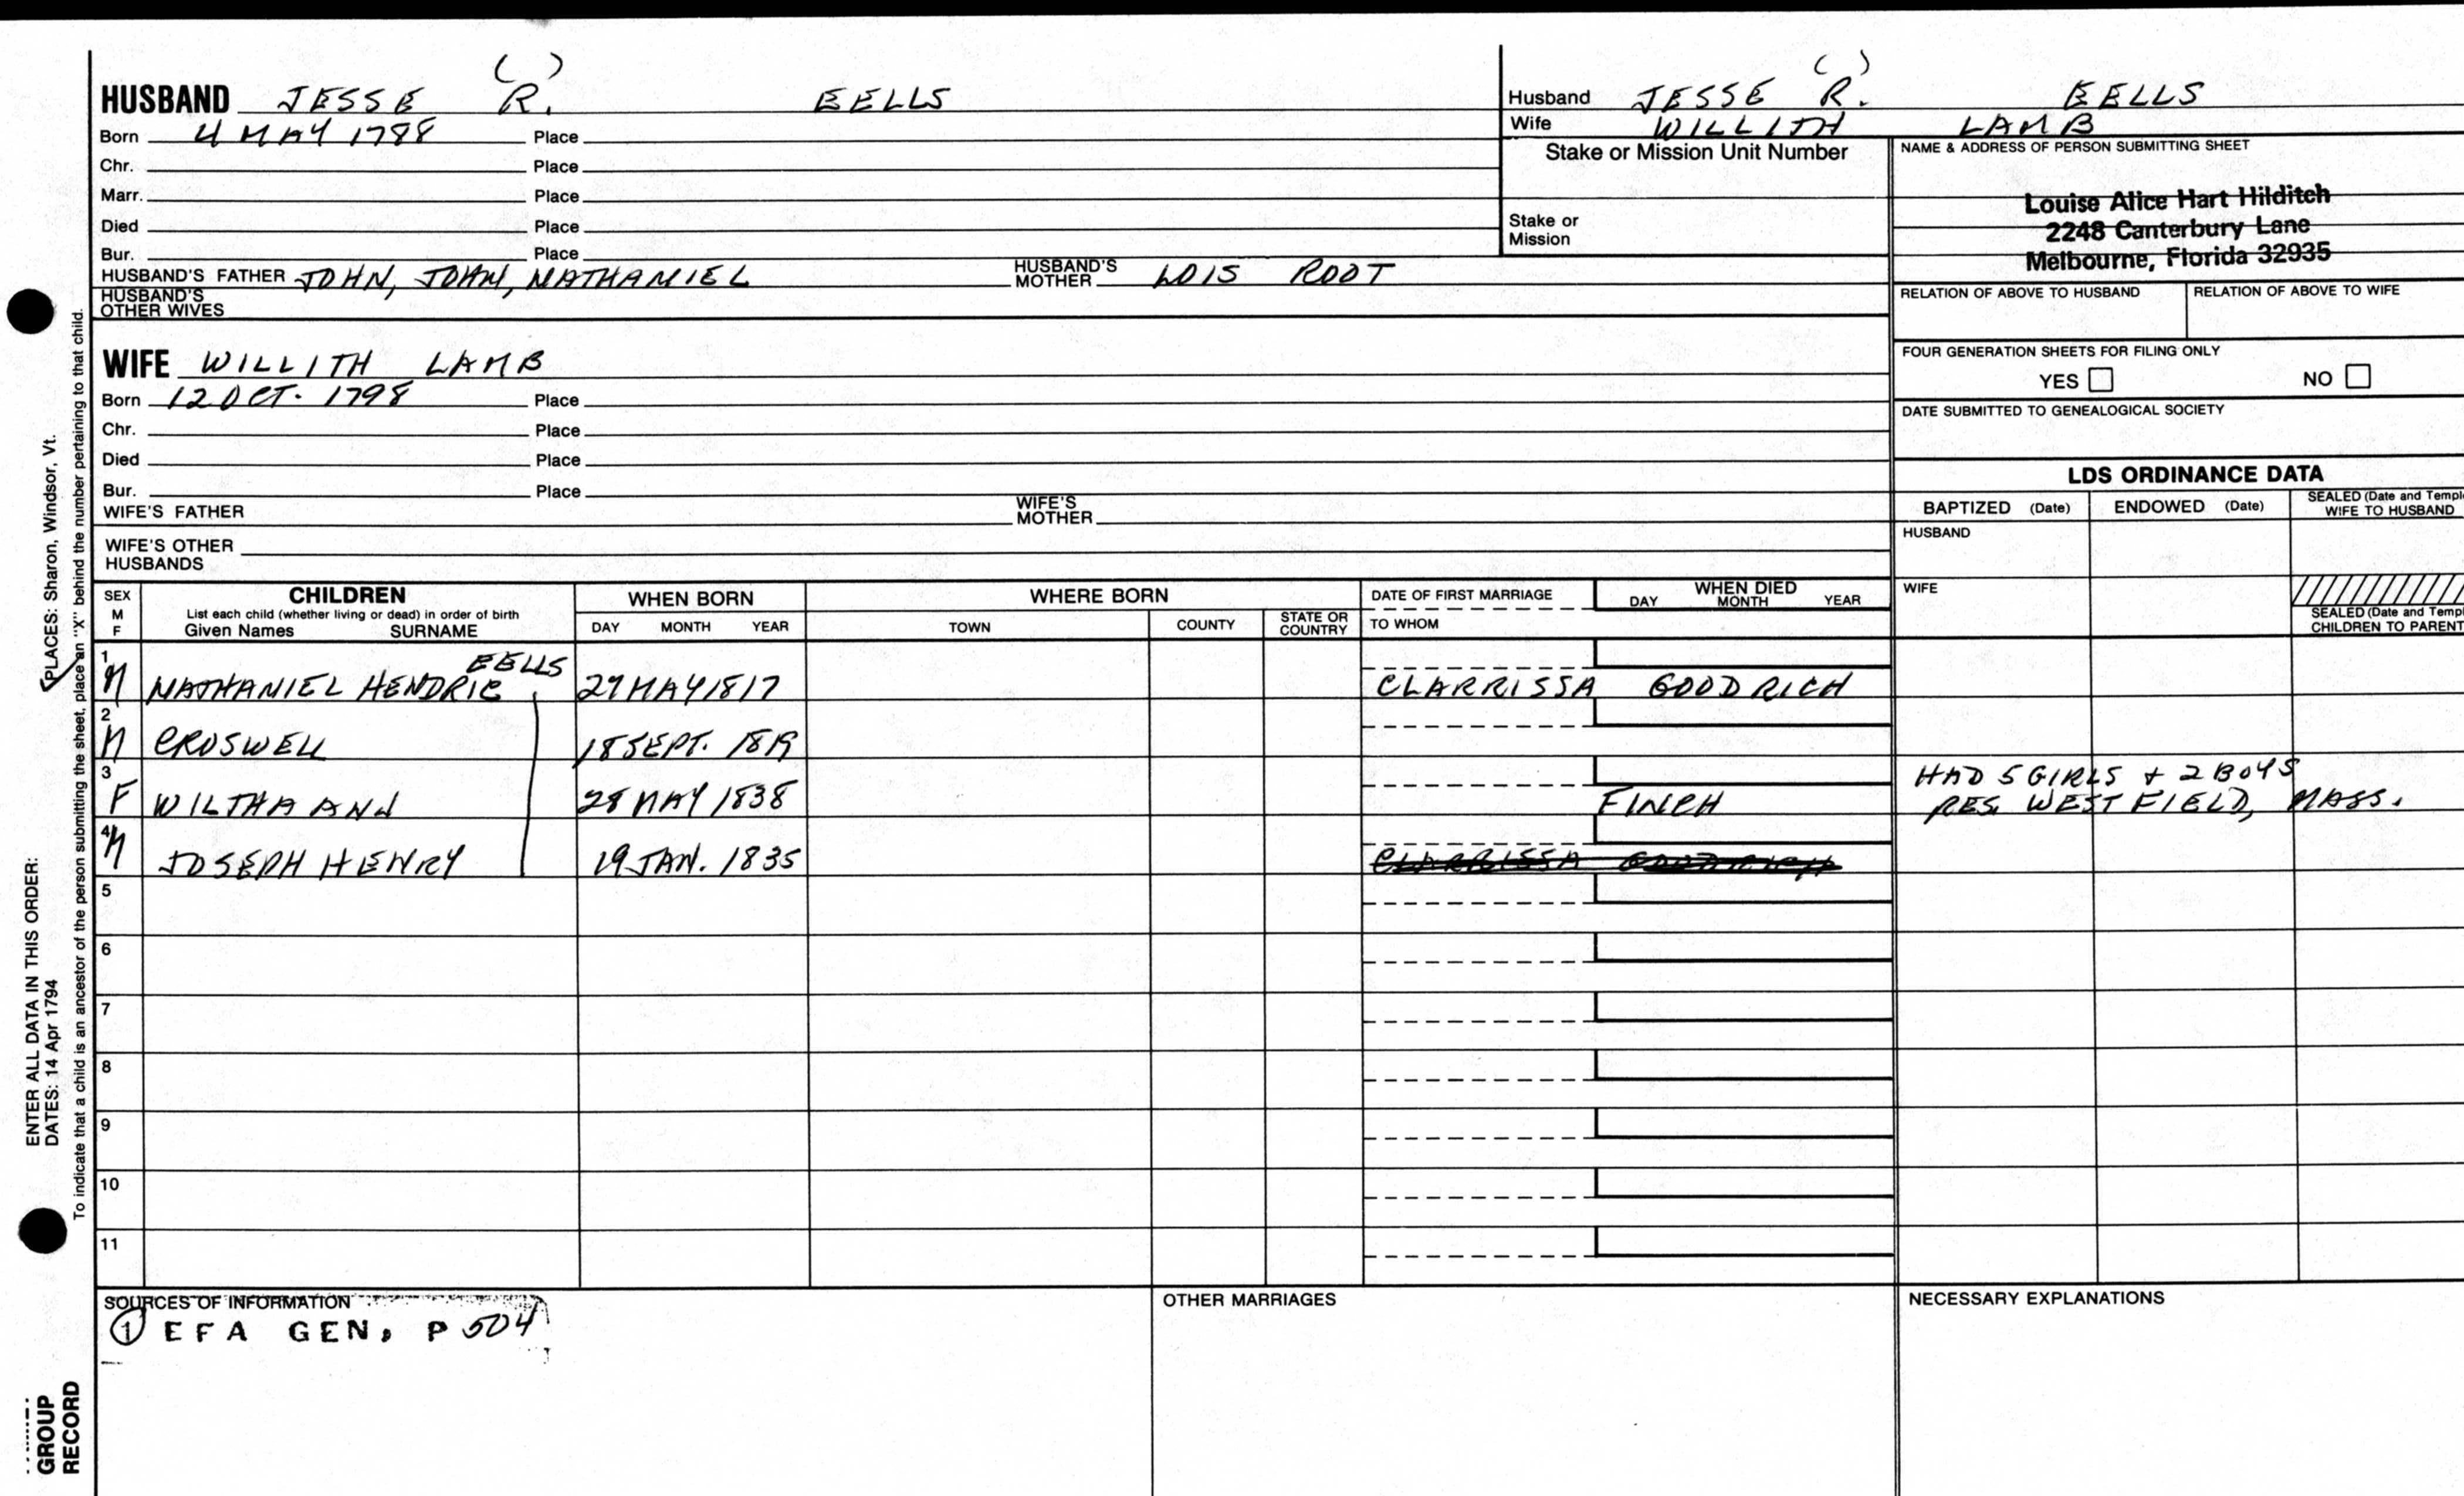 ( )
HUSBAND JESSE R. EELLS
Born 4 MAY 1788 Place
Chr. Place
Marr. Place
Died Place
Bur. Place
HUSBAND'S FATHER JOHN, JOHN, NATHANIEL HUSBAND'S MOTHER LOIS ROOT
HUSBAND'S OTHER WIVES
( )
Husband JESSE R. EELLS
Wife WILLITH LAMB
Stake or Mission Unit Number
Stake or
Mission
NAME & ADDRESS OF PERSON SUBMITTING SHEET
Louise Alice Hart Hilditch
2248 Canterbury Lane
Melbourne, Florida 32935
RELATION OF ABOVE TO HUSBAND RELATION OF ABOVE TO WIFE
FOUR GENERATION SHEETS FOR FILING ONLY
YES NO
DATE SUBMITTED TO GENEALOGICAL SOCIETY
WIFE WILLITH LAMB
Born 12 OCT. 1798 Place
Chr. Place
Died Place
Bur. Place
WIFE'S FATHER WIFE'S MOTHER
WIFE'S OTHER
HUSBANDS
LDS ORDINANCE DATA
BAPTIZED (Date) ENDOWED (Date) SEALED (Date and Templ
WIFE TO HUSBAND
HUSBAND
WIFE
SEALED (Date and Templ
CHILDREN TO PARENT
SEX
M
F
CHILDREN
List each child (whether living or dead) in order of birth
Given Names SURNAME
WHEN BORN
DAY MONTH YEAR
WHERE BORN
TOWN COUNTY STATE OR COUNTRY
DATE OF FIRST MARRIAGE
TO WHOM
WHEN DIED
DAY MONTH YEAR
1 EELLS
M NATHANIEL HENDRIC 27 MAY 1817 CLARRISSA GOODRICH
2
M CROSWELL 18 SEPT. 1819
3 HAD 5 GIRLS + 2 BOYS
F WILTHA ANN 28 MAY 1838 FINCH RES. WESTFIELD, MASS.
4
M JOSEPH HENRY 19 JAN. 1835 CLARRISSA GOODRICH
5
6
7
8
9
10
11
SOURCES OF INFORMATION
1 EFA GEN. P 504
OTHER MARRIAGES
NECESSARY EXPLANATIONS
ENTER ALL DATA IN THIS ORDER:
DATES: 14 Apr 1794 PLACES: Sharon, Windsor, Vt.
To indicate that a child is an ancestor of the person submitting the sheet, place an "X" behind the number pertaining to that child.
GROUP
RECORD